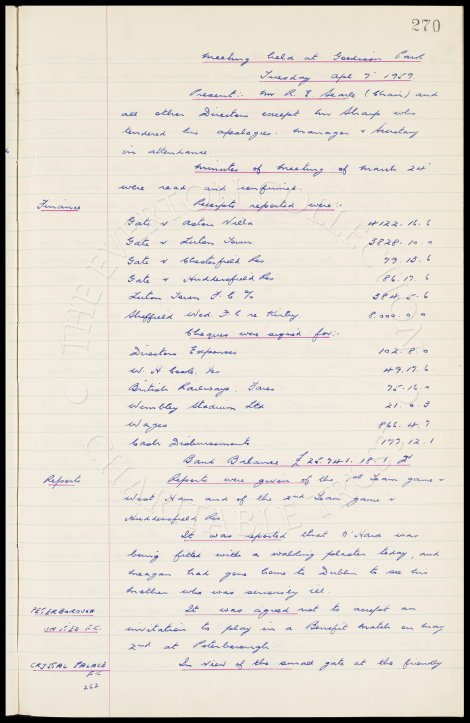 270
Meeting held at Goodison Park
Tuesday Apl 7 1959.
Present:- Mr R. E. Searle (Chair) and
all other Directors except Mr Sharp who
tendered his apologies. Manager & Secretary
in attendance.
Minutes of meeting of March 24
were read and confirmed.
Finance
Receipts reported were:-
Gate v Aston Villa 4122.16.6
Gate v Luton Town 3828.10.0
Gate v Chesterfield Res 79.13.6
Gate v Huddersfield Res 86.17.6
Luton Town F C % 384.5.6
Sheffield Wed F C re Kirby 8.000.0.0
Cheques were signed for:-
Directors Expenses 102.8.0
W. H. Cook. 49.17.6
British Railways. Fares 75.16.0
Wembley Stadium Ltd 21.0.3
Wages 866.4.7
Cash Disbursements 177.12.1
Bank Balance £25741.18.1
Reports
Reports were given of the 1st Team game v
West Ham and of the 2nd Team game v
Huddersfield Res
It was reported that O'Hara was
being fitted with a walking plaster today, and
Meagan had gone home to Dublin to see his
mother who was seriously ill.
PETERBOROUGH
UNITED F.C.
It was agreed not to accept an
invitation to play in a Benefit match on May
2nd at Peterborough.
CRYSTAL PALACE
F.C
262
In view of the small gate at the friendly
THE EVERTON COLLECTION
CHARITABLE TRUST